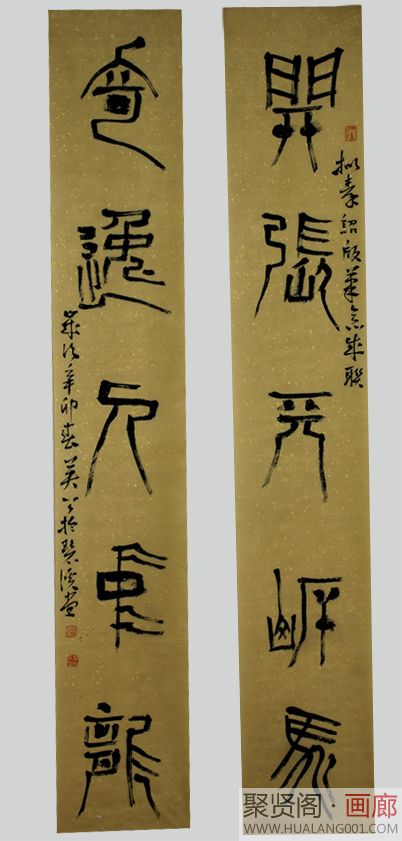 開張天岸馬
秦詔版筆意
奇逸人中龍
歲次辛卯春
聚贤阁·画廊
WWW.HUALANG001.COM